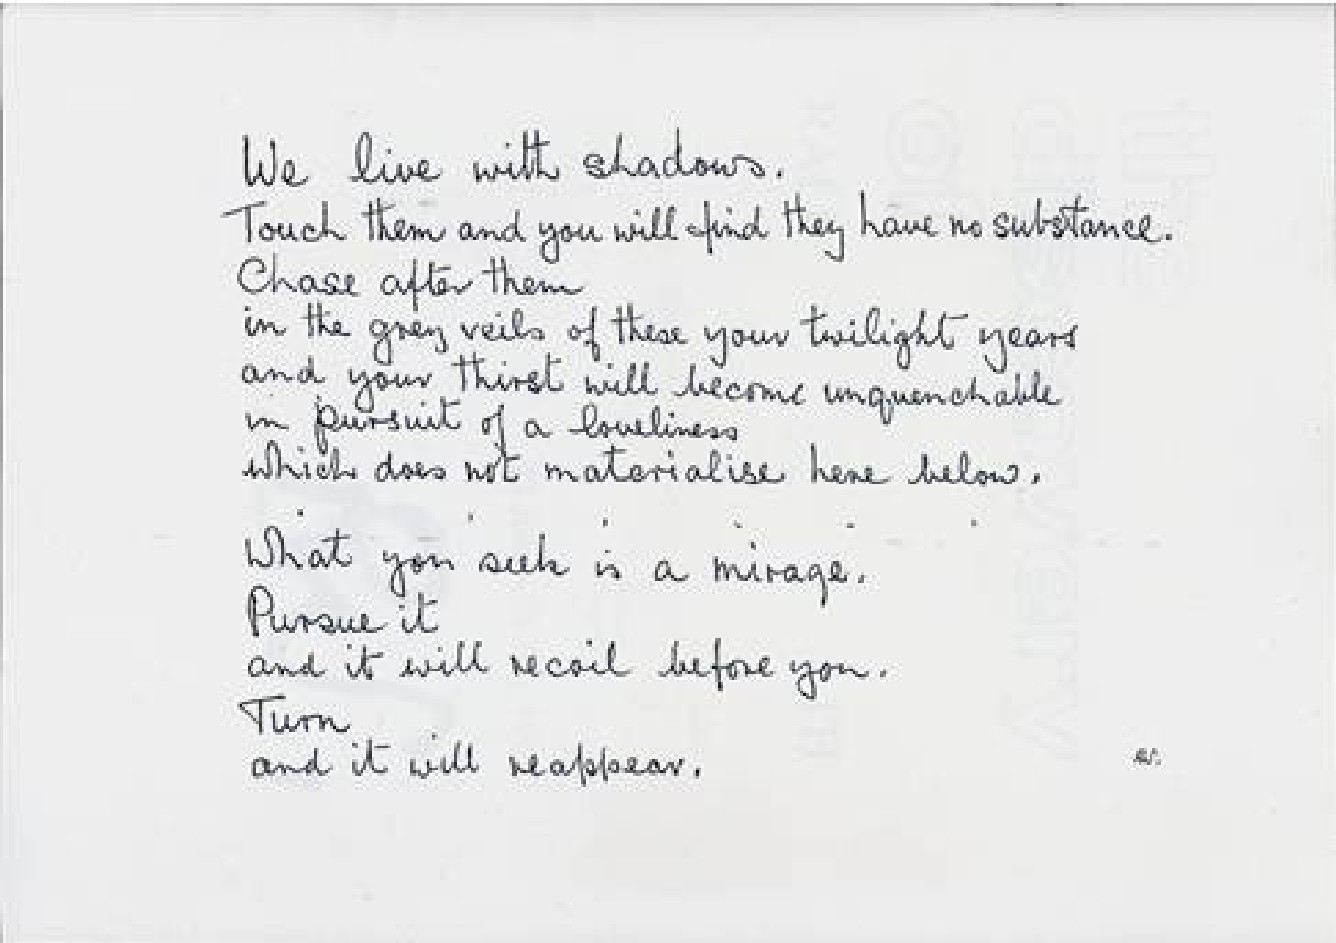 We live with shadows.
Touch them and you will find they have no substance.
Chase after them
in the grey veils of these your twilight years
and your thirst will become unquenchable
in pursuit of a loveliness
which does not materialise here below.
. . . . . .
What you seek is a mirage.
Pursue it
and it will recoil before you.
Turn
and it will reappear.